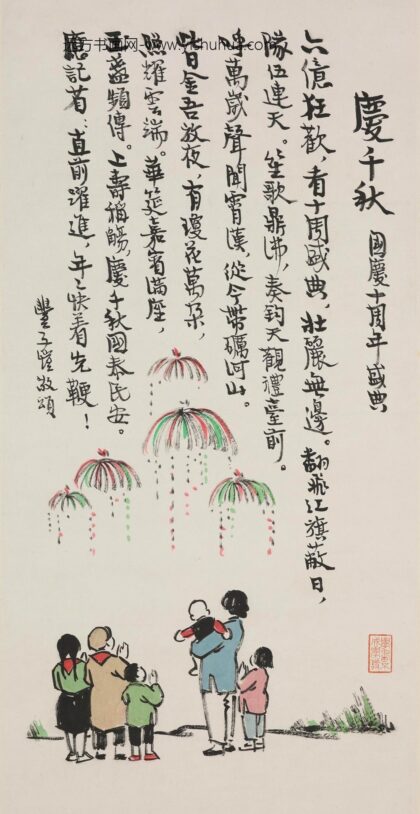 慶千秋
國慶十周年盛典
六億狂歡，看十周盛典，壯麗無邊。翻飛紅旗蔽日，
隊伍連天。笙歌鼎沸，奏鈞天觀禮臺前。
呼萬歲聲聞霄漢，從今帶礪河山。
此日金吾放夜，有瓊花萬朵，
照耀雲端。華筵嘉賓滿座，
玉盞頻傳。上壽稱觴，慶千秋國泰民安。
應記着：直前躍進，年々快着先鞭！
豐子愷敬頌